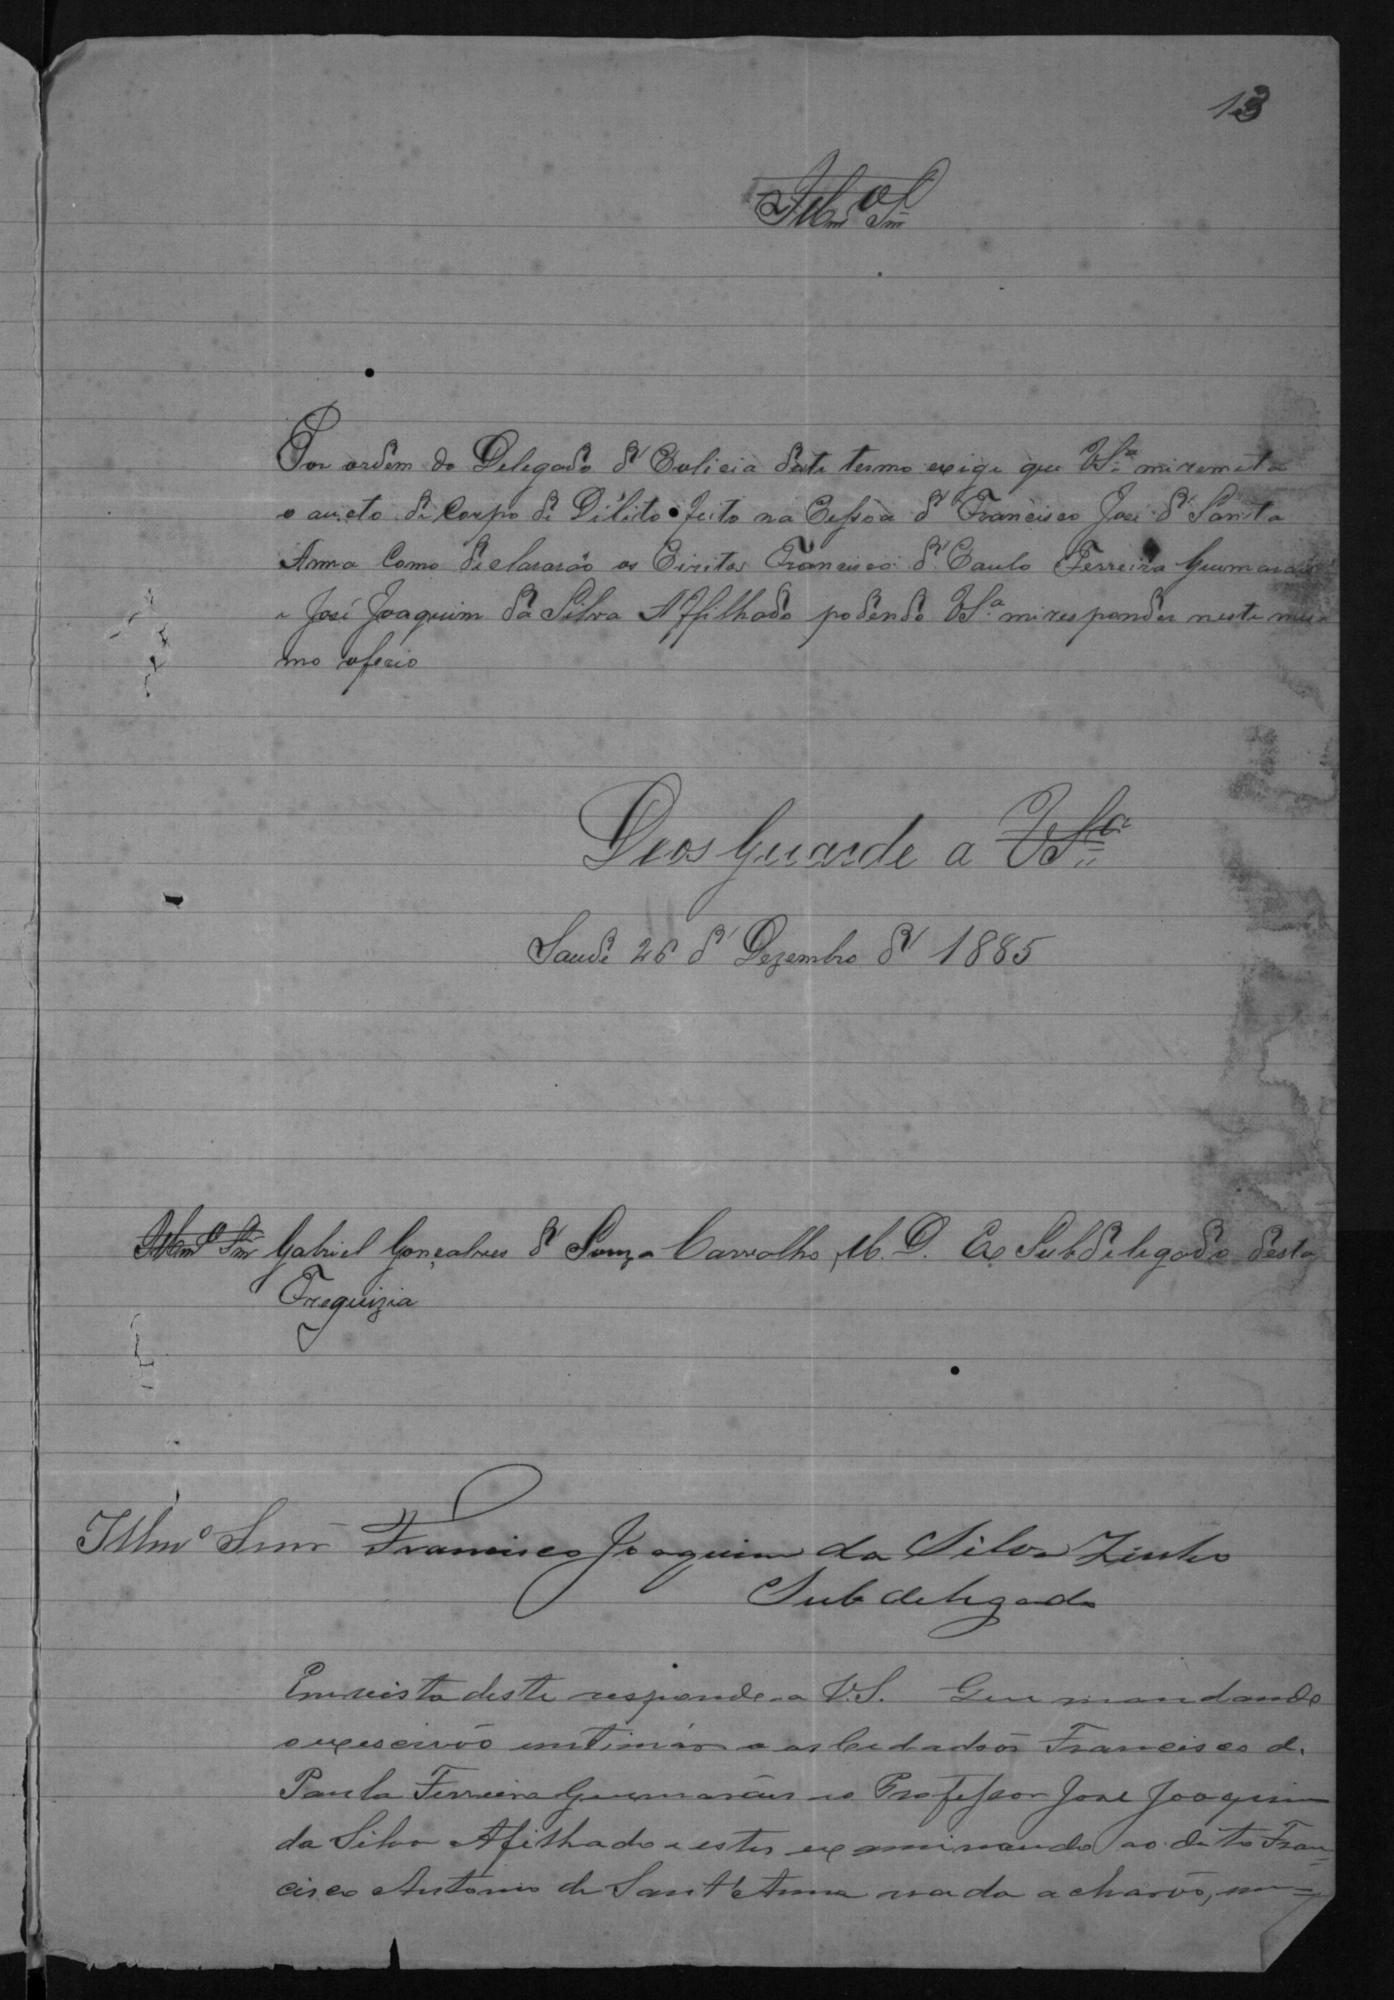 13
Illmº Sm
Por ordem do Delegado d' Policia deste termo exige que VSª mi remeta
o aucto di Corpo di Dilito feito na Pessôa d' Francisco José d' Santa
Anna como diclararão os Piritos Francisco d' Paulo Ferreira Guimarães
e José Joaquim da Silva Affilhado podendo VSª mi responder neste mes
mo oficio
Deos Guarde a VSª
Saude 26 d' Dezembro d' 1885
Illmº Sm Gabriel Gonçalves d' Souza Carvalho, M. D. Ex Subdelegado desta
Freguizia
Illmº Snr Francisco Joaquim da Silva
Subdelegado
Em vista deste responde a V.S. Que mandando
o escrivão intimar a os Cidadãos Francisco d.
Paula Ferreira Guimarães e o Professor José Joaquim
da Silva Afilhado e estes examinando ao dito Fran=
cisco Antonio de Sant'Anna nada acharão,